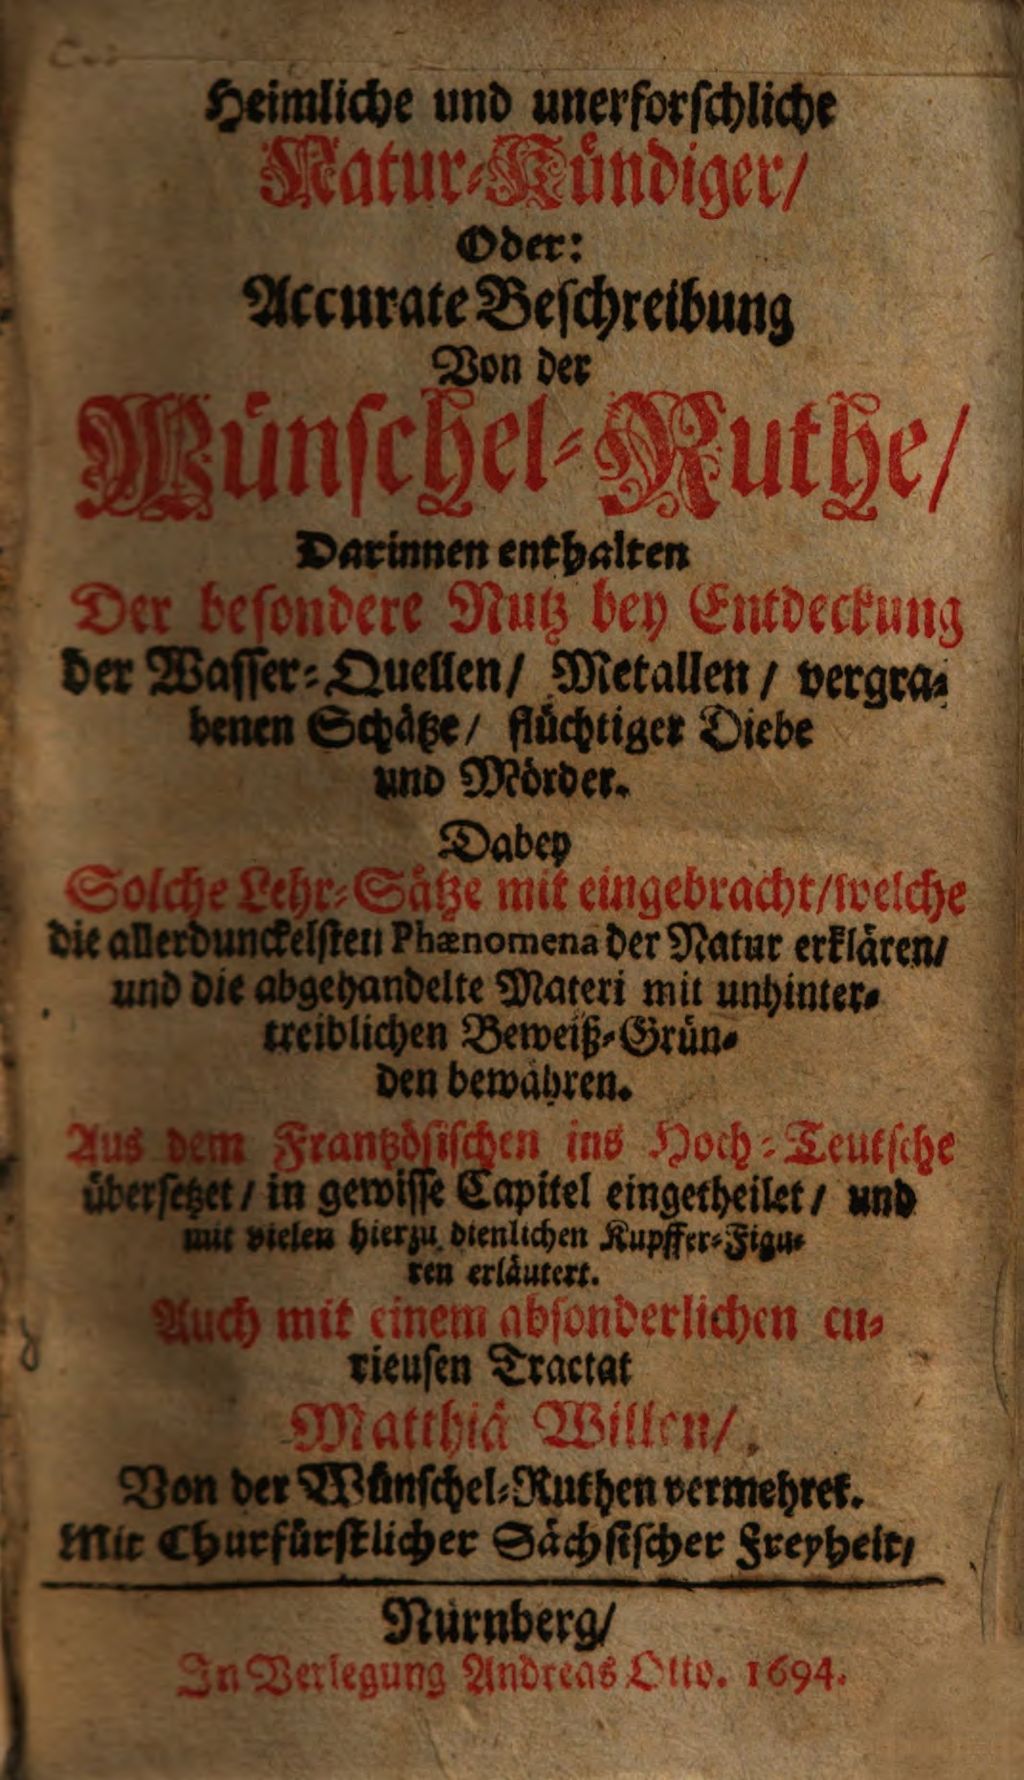 Heimliche und unerforschliche
Natur-Kündiger/
Oder:
Accurate Beschreibung
Von der
Wünschel-Ruthe/
Darinnen enthalten
Der besondere Nutz bey Entdeckung
der Wasser-Quellen/ Metallen/ vergra-
benen Schätze/ flüchtiger Diebe
und Mörder.
Dabey
Solche Lehr-Sätze mit eingebracht/welche
die allerdunckelsten Phænomena der Natur erklären/
und die abgehandelte Materi mit unhinter-
treiblichen Beweiß-Grün-
den bewähren.
Aus dem Frantzösischen ins Hoch-Teutsche
übersetzet/ in gewisse Capitel eingetheilet/ und
mit vielen hierzu dienlichen Kupffer-Figu-
ren erläutert.
Auch mit einem absonderlichen cu-
rieusen Tractat
Matthiä Willen/
Von der Wünschel-Ruthen vermehret.
Mit Churfürstlicher Sächsischer Freyheit/
Nürnberg/
In Verlegung Andreas Otto. 1694.